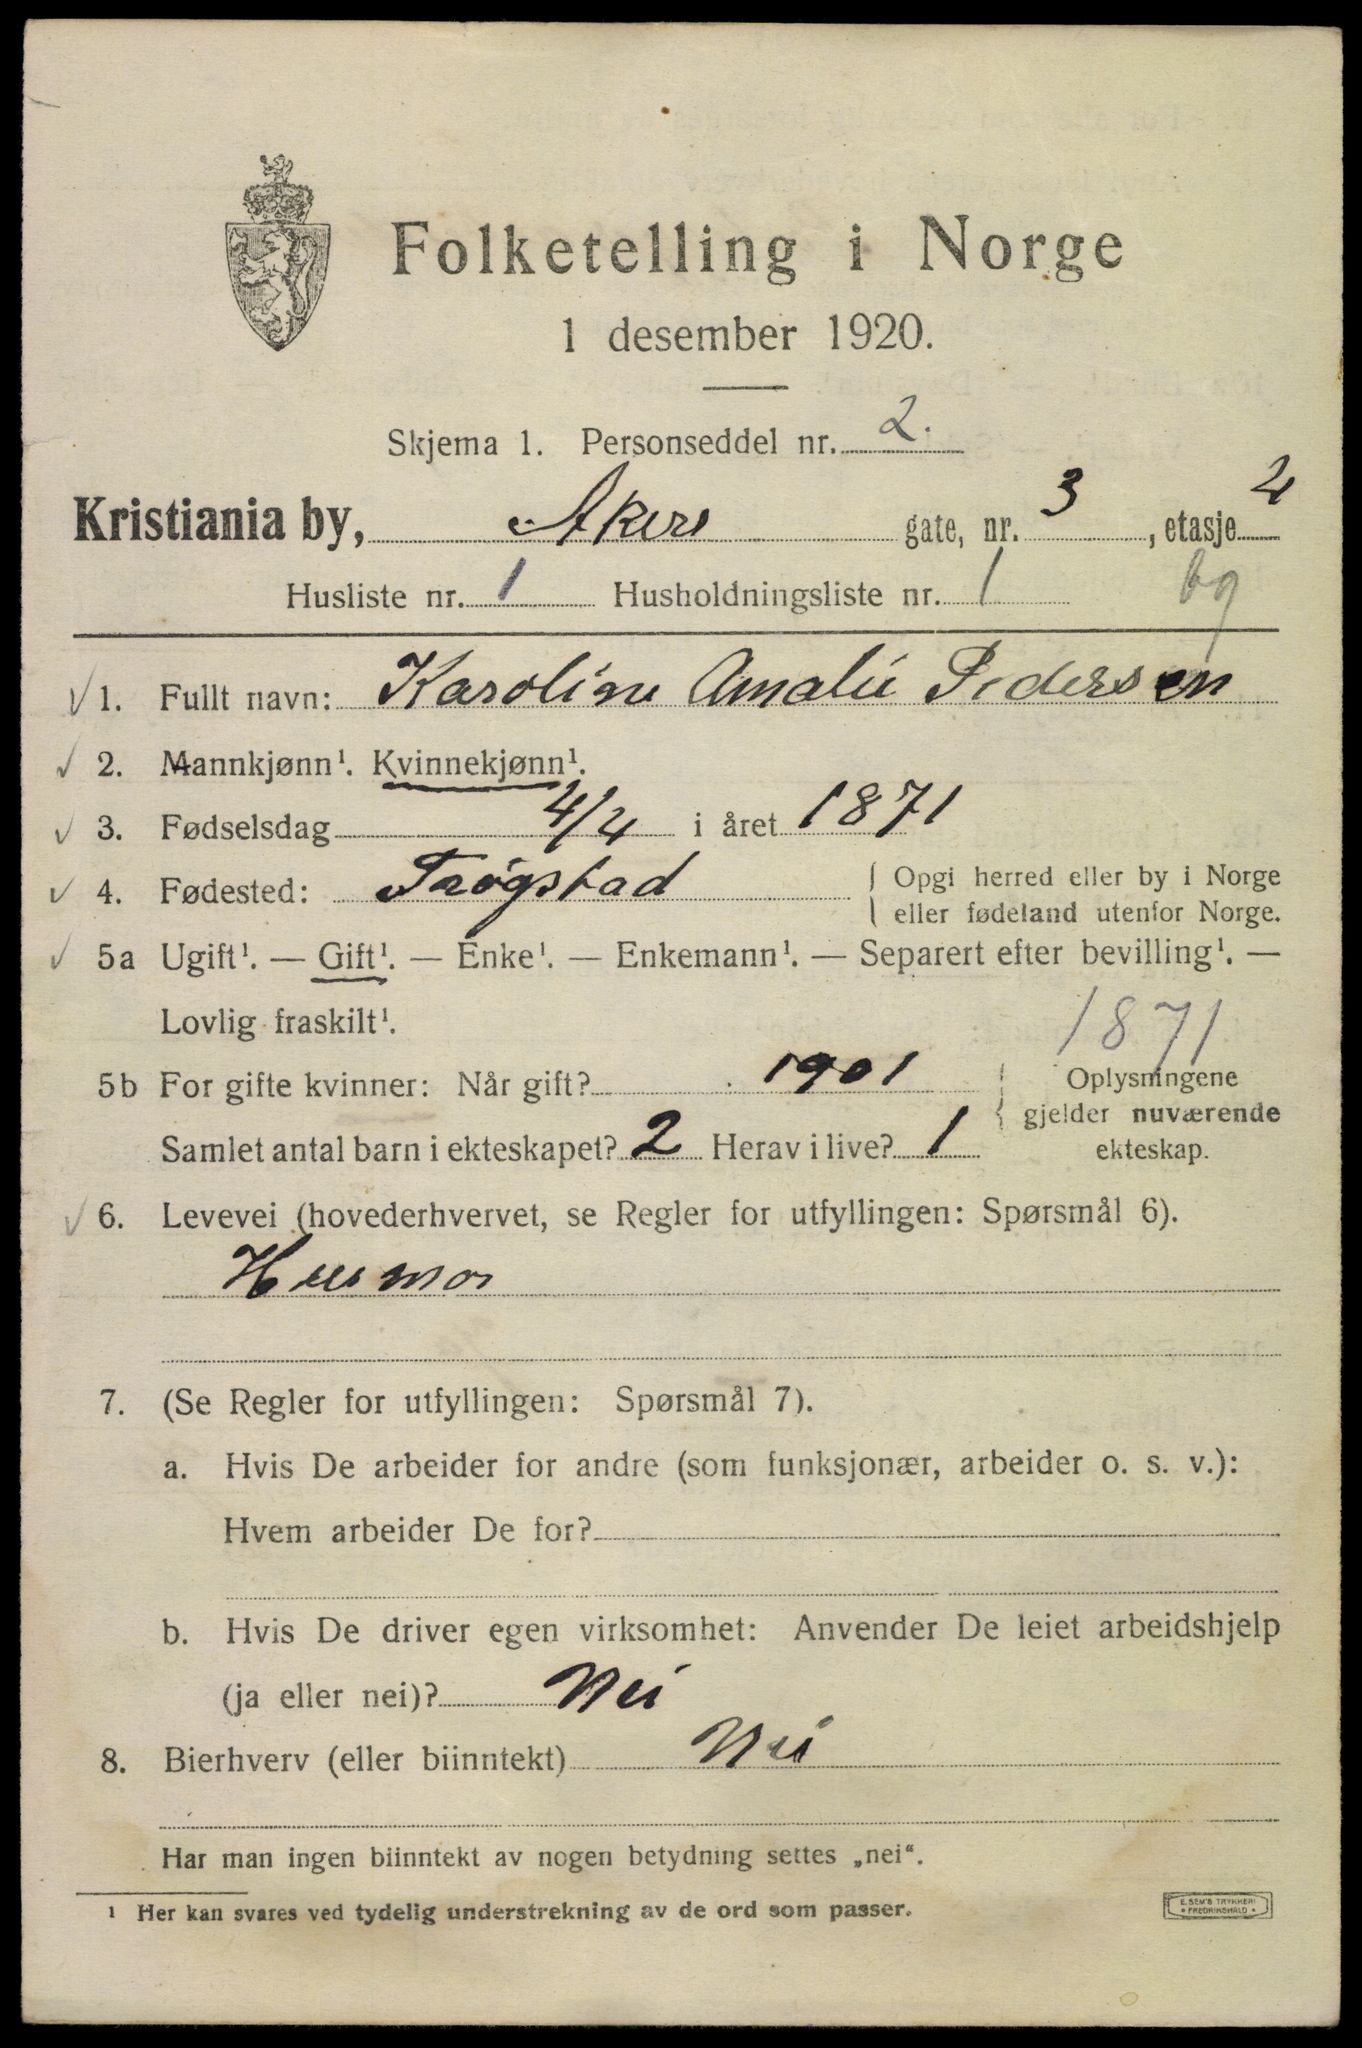 Folketelling i Norge
1 desember 1920.
Skjema 1. Personseddel nr. 2.
Kristiania by, Akers gate, nr. 3, etasje 2
Husliste nr. 1 Husholdningsliste nr. 1 bg
1. Fullt navn: Karoline Amalie Pedersen
2. Mannkjønn¹. Kvinnekjønn¹.
3. Fødselsdag 4/4 i året 1871
4. Fødested: Trøgstad { Opgi herred eller by i Norge
eller fødeland utenfor Norge.
5a Ugift¹. — Gift¹. — Enke¹. — Enkemann¹. — Separert efter bevilling¹. —
Lovlig fraskilt¹.
1871
5b For gifte kvinner: Når gift? 1901 { Oplysningene
gjelder nuværende
Samlet antal barn i ekteskapet? 2 Herav i live? 1 ekteskap.
6. Levevei (hovederhvervet, se Regler for utfyllingen: Spørsmål 6).
Husmor
7. (Se Regler for utfyllingen: Spørsmål 7).
a. Hvis De arbeider for andre (som funksjonær, arbeider o. s. v.):
Hvem arbeider De for?
b. Hvis De driver egen virksomhet: Anvender De leiet arbeidshjelp
(ja eller nei)? Nei
8. Bierhverv (eller biinntekt) Nei
Har man ingen biinntekt av nogen betydning settes „nei“.
¹ Her kan svares ved tydelig understrekning av de ord som passer.
E. SEM'S TRYKKERI
• FREDRIKSHALD •